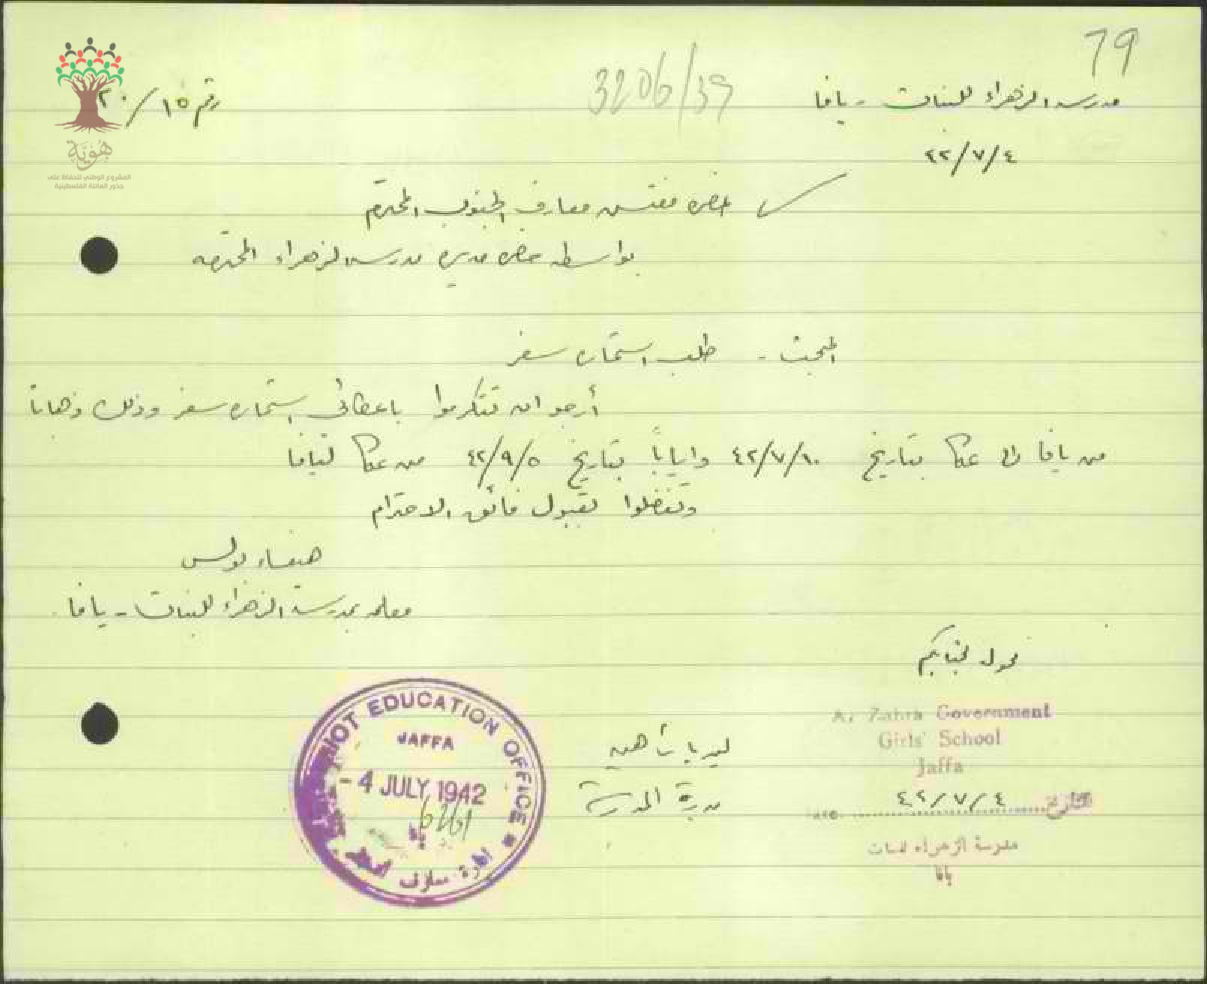 79
مدرسة الزهراء للبنات - يافا
3206/39
رقم ٢٠/١٥
٤٢/٧/٤
هوية
المشروع الوطني للحفاظ على
جذور العائلة الفلسطينية
لحضرة مفتش معارف الجنوب المحترم
بواسطة حضرة مديرة مدرسة الزهراء المحترمة
المبحث - طلب استمارة سفر
أرجو ان تتكرموا باعطائي استمارة سفر وذلك ذهاباً
من يافا الى عكا بتاريخ ٤٢/٧/١٠ واياباً بتاريخ ٤٢/٩/٥ من عكا ليافا
وتفضلوا بقبول فائق الاحترام
هيفاء بولس
معلمة بمدرسة الزهراء للبنات - يافا
محول لجنابكم
Az Zahra Government
Girls' School
Jaffa
Date ٤٢/٧/٤ تاريخ
مدرسة الزهراء للبنات
يافا
ليديا شاهين
مديرة المدرسة
EDUCATION OFFICE
JAFFA
- 4 JULY 1942
6261
يافا
ادارة معارف